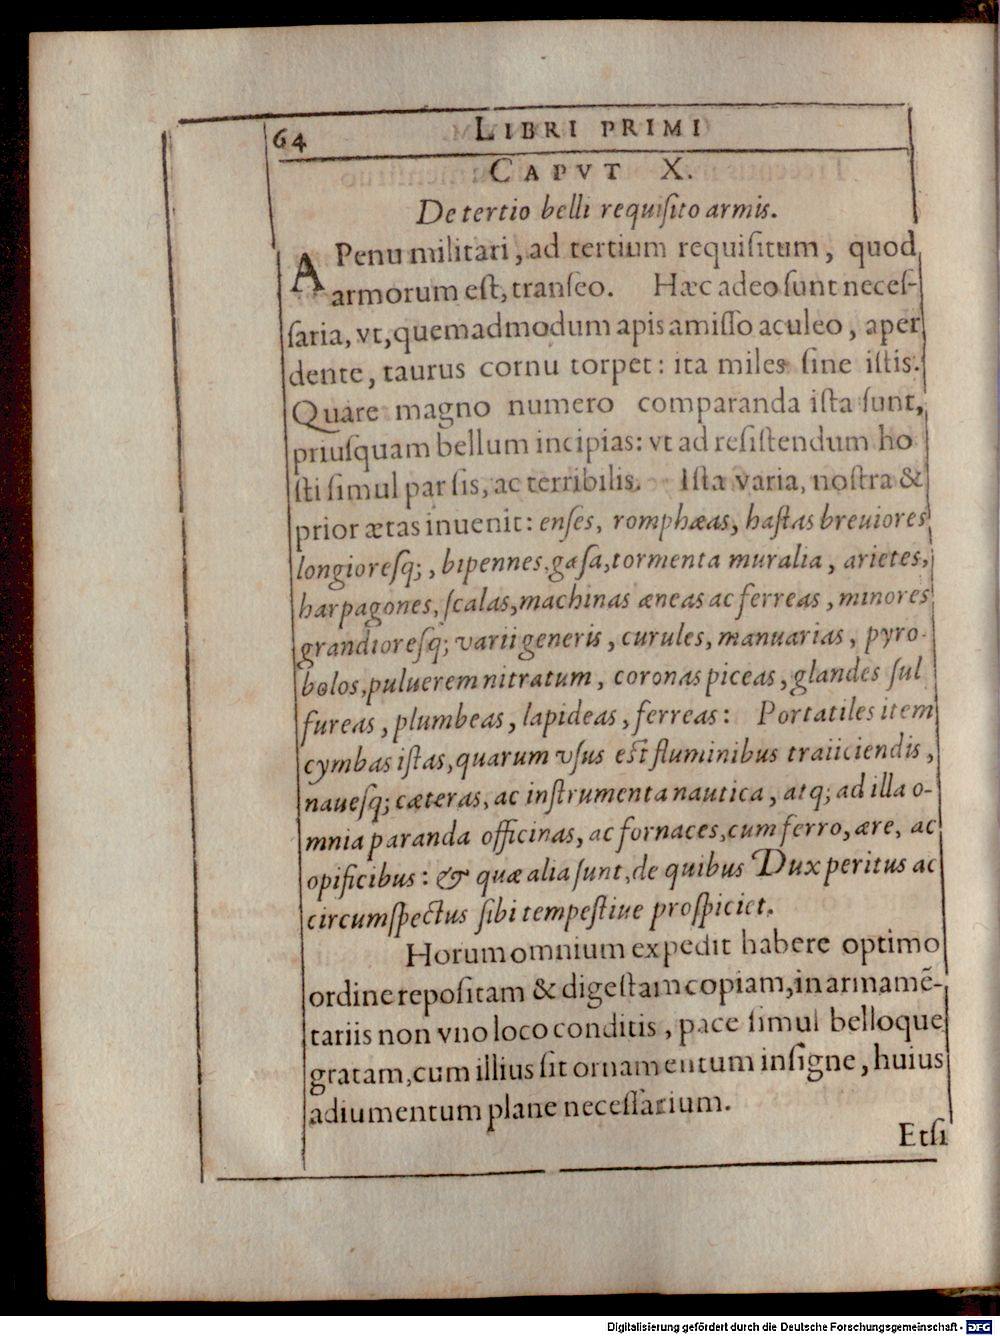 64
LIBRI PRIMI
CAPVT X.
De tertio belli requiſito armis.
A Penu militari, ad tertium requiſitum, quod
armorum eſt, tranſeo. Hæc adeo ſunt neceſ-
ſaria, vt, quemadmodum apis amiſſo aculeo, aper
dente, taurus cornu torpet: ita miles ſine iſtis.
Quare magno numero comparanda iſta ſunt,
priuſquam bellum incipias: vt ad reſiſtendum ho
ſti ſimul par ſis, ac terribilis. Iſta varia, noſtra &
prior ætas inuenit: enſes, romphæas, haſtas breuiores
longioreſq;, bipennes, gæſa, tormenta muralia, arietes,
harpagones, ſcalas, machinas æneas ac ferreas, minores
grandioreſq; varii generis, curules, manuarias, pyro-
bolos, puluerem nitratum, coronas piceas, glandes ſul
fureas, plumbeas, lapideas, ferreas: Portatiles item
cymbas iſtas, quarum vſus eſt fluminibus traiiciendis,
naueſq; cæteras, ac inſtrumenta nautica, atq; ad illa o-
mnia paranda officinas, ac fornaces, cum ferro, ære, ac
opificibus: & quæ alia ſunt, de quibus Dux peritus ac
circumſpectus ſibi tempeſtiue proſpiciet.
Horum omnium expedit habere optimo
ordine repoſitam & digeſtam copiam, in armamē-
tariis non vno loco conditis, pace ſimul belloque
gratam, cum illius ſit ornamentum inſigne, huius
adiumentum plane neceſſarium.
Etſi
Digitalisierung gefördert durch die Deutsche Forschungsgemeinschaft - DFG